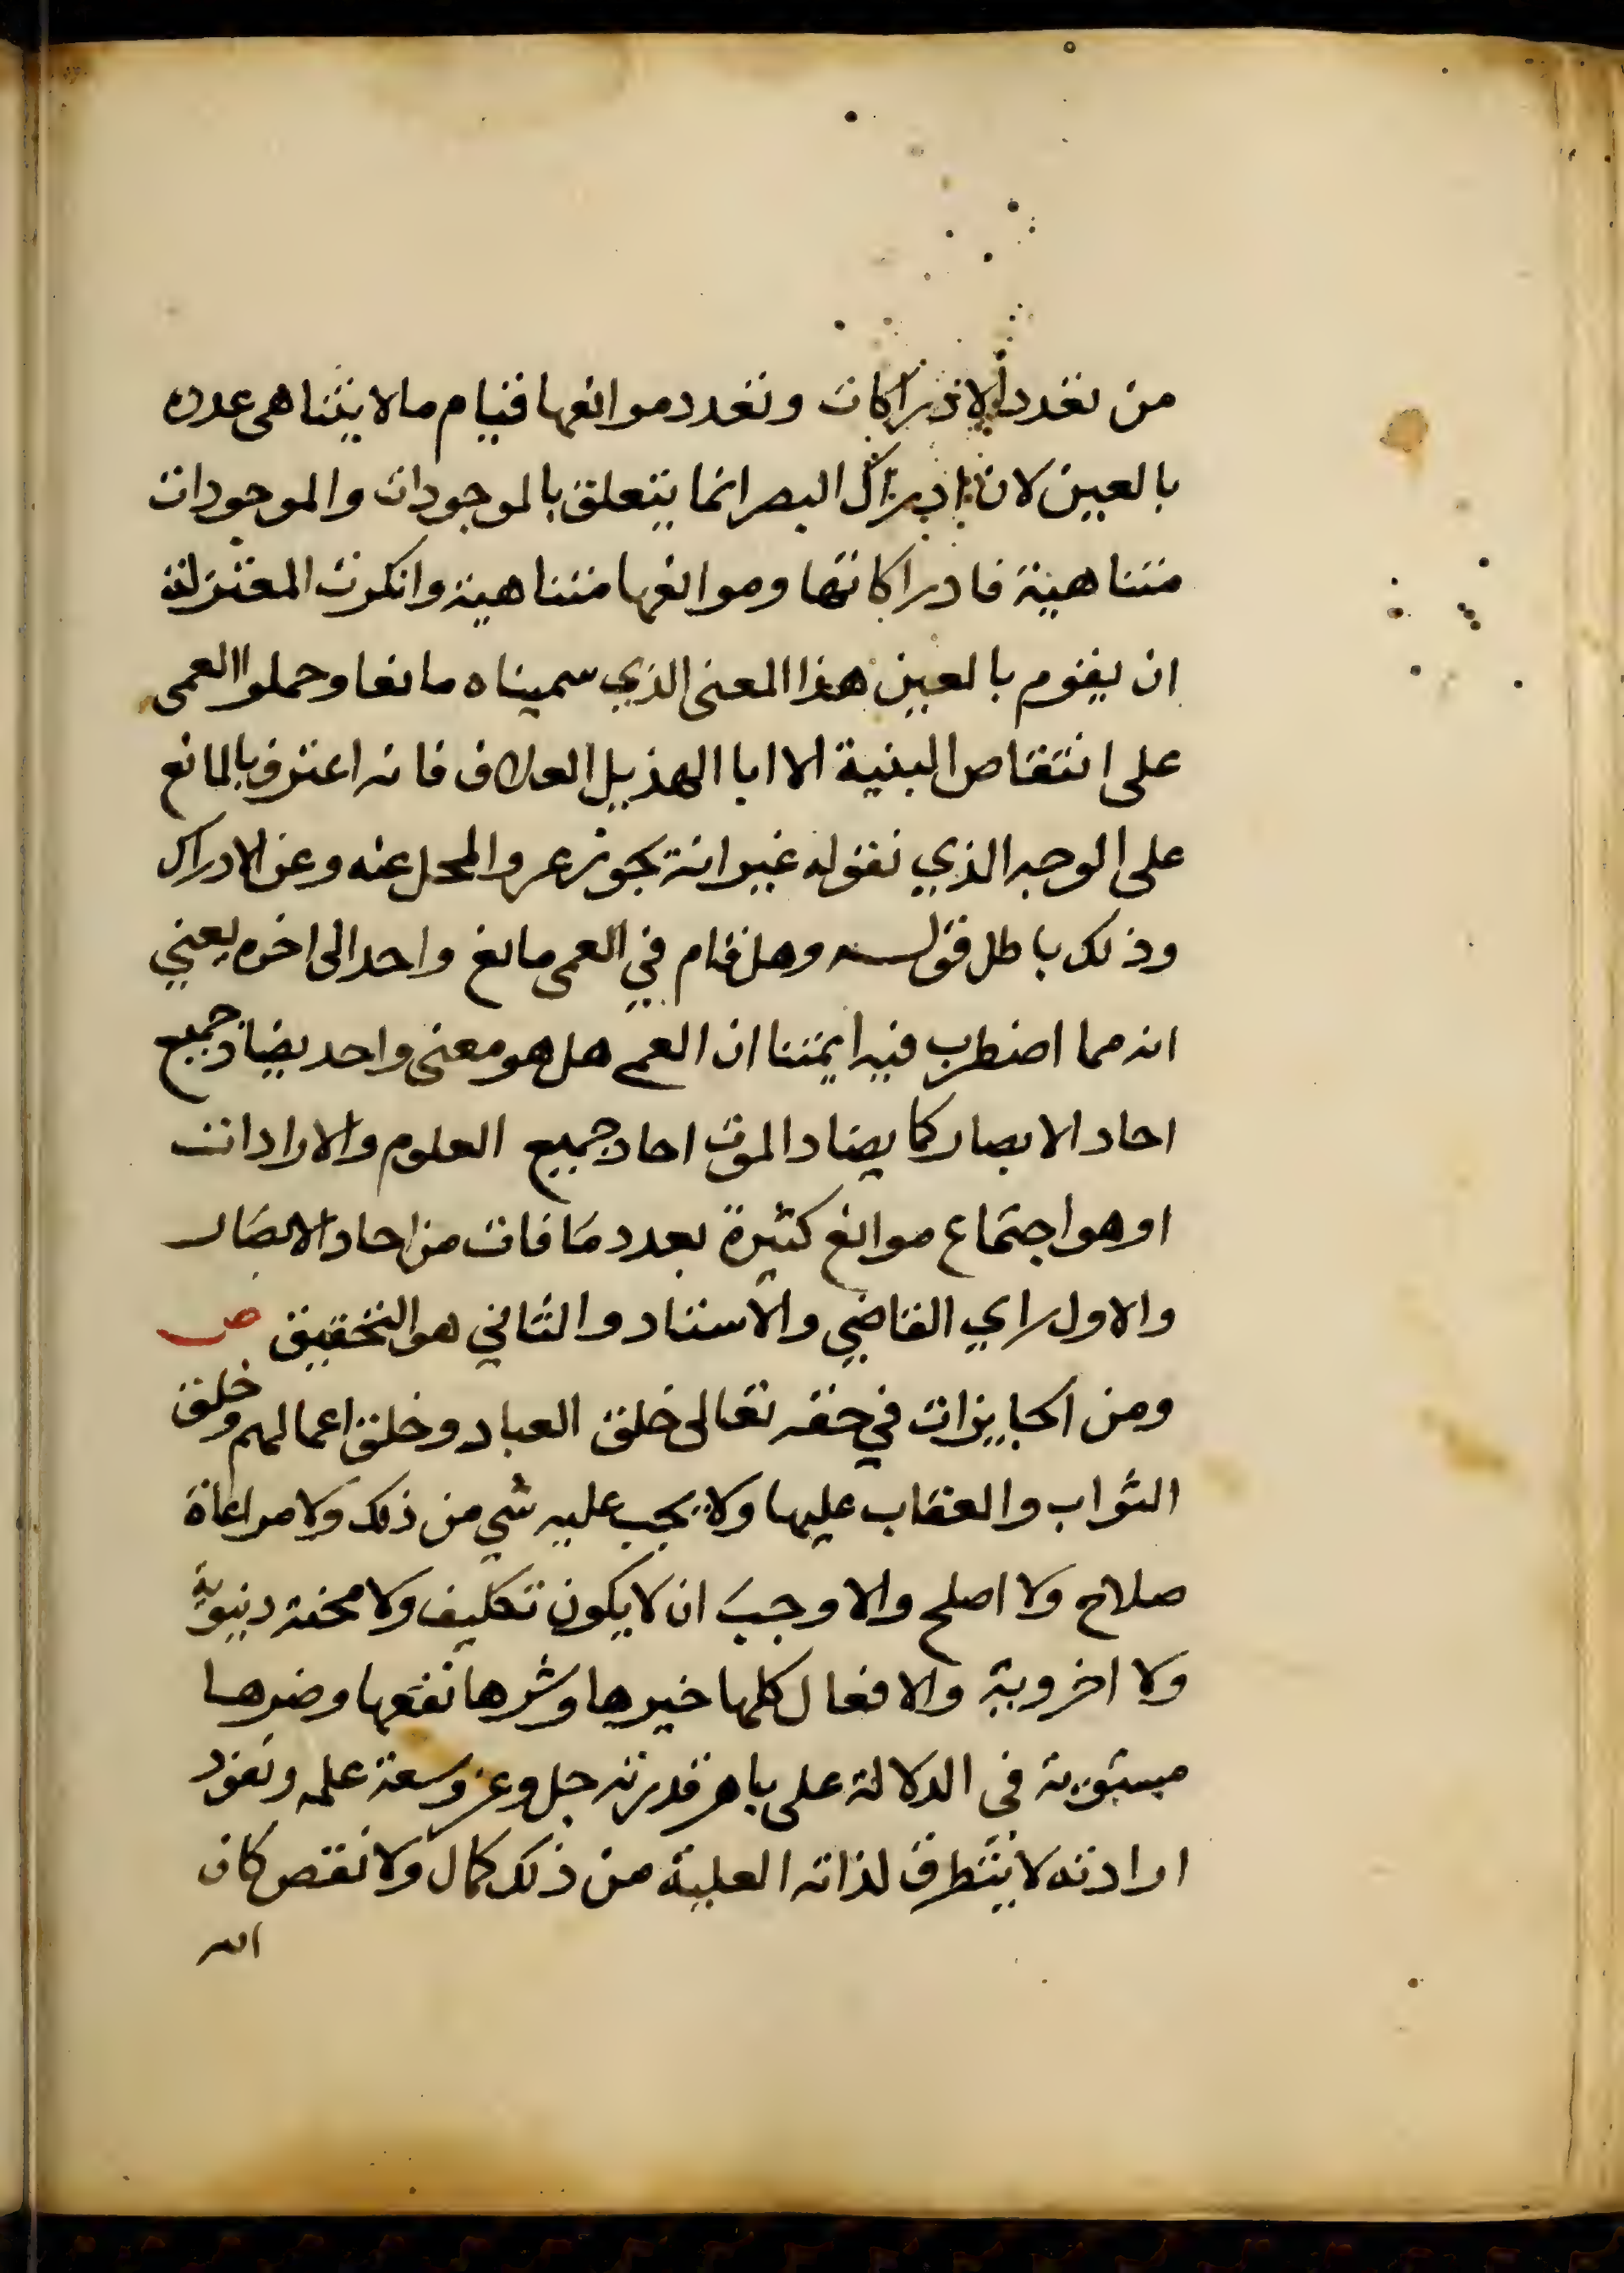 من تعدد الادراكات وتعدد موانعها قيام ما لا يتناهى عدده
بالعين لان ادراك البصر انما يتعلق بالموجودات والموجودات
متناهية فادراكاتها وموانعها متناهية وانكرت المعتزلة
ان يقوم بالعين هذا المعنى الذي سميناه مانعا وحملوا العمى
على انتقاص البنية الا ابا الهذيل العلاف فانه اعترف بالمانع
على الوجه الذي نقوله غير انه يجوز عرو المحل عنه وعن الادراك
وذلك باطل قوله وهل قام في العمى مانع واحد الى اخره يعني
انه مما اضطرب فيه ايمتنا ان العمى هل هو معنى واحد يضاد جميع
احاد الابصار كما يضاد الموت احاد جميع العلوم والارادات
او هو اجتماع موانع كثيرة بعدد ما فات من احاد الابصار
والاول راي القاضي والاستاد والثاني هو التحقيق ص
ومن الجايزات في حقه تعالى خلق العباد وخلق اعمالهم وخلق
الثواب والعقاب عليها ولا يجب عليه شي من ذلك ولا مراعاة
صلاح ولا اصلح والا وجب ان لا يكون تكليف ولا محنة دنيوية
ولا اخروية والافعال كلها خيرها وشرها نفعها وضرها
مستوية في الدلالة على باهر قدرته جل وعز وسعة علمه ونفود
ارادته لا يتطرق لذاته العلية من ذلك كمال ولا نقص كان
الله